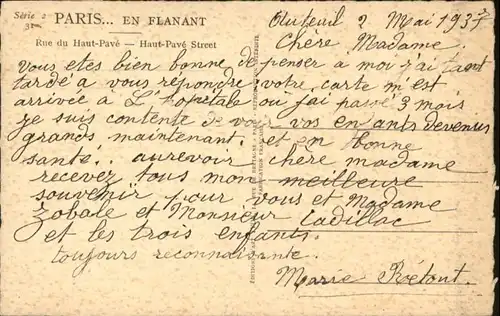 Série 2
PARIS... EN FLANANT
Rue du Haut-Pavé — Haut-Pavé Street
Auteuil 2 Mai 1937
Chère Madame.
vous etes bien bonne de penser a moi j'ai tant
tardé a vous répondre votre carte m'est
arrivée a L'hopitale ou j'ai passé 3 mois
je suis contente de voir vos enfants devenus
grands maintenant. et en bonne
santé. aurevoir chère madame
recevez tous mon meilleure
souvenir pour vous et Madame
Zobale et Monsieur Cadillac
et les trois enfants.
toujours reconnaissante.
Marie Rétout.